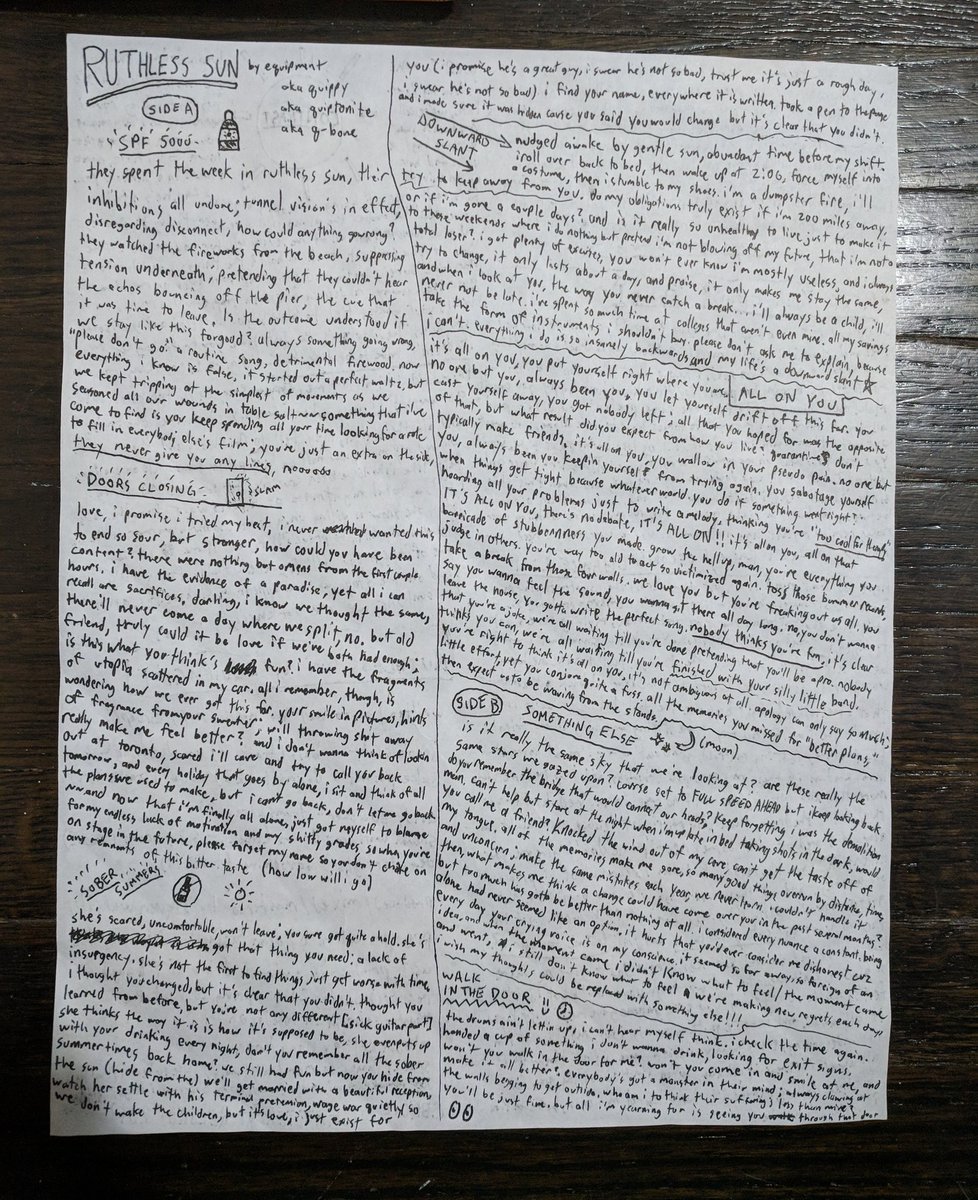 RUTHLESS SUN by equipment
aka quippy
aka quiptonite
aka q-bone
SIDE A
SPF 5000
they spent the week in ruthless sun, their
inhibitions all undone; tunnel vision's in effect,
disregarding disconnect, how could anything go wrong?
they watched the fireworks from the beach, suppressing
tension underneath; pretending that they couldn't hear
the echos bouncing off the pier, the cue that
it was time to leave. Is the outcome understood if
we stay like this for good? always something going wrong,
"please don't go" a routine song, detrimental firewood, now
everything i know is false, it started out a perfect waltz, but
we kept tripping at the simplest of movements as we
seasoned all our wounds in table salt now something that i've
come to find is you keep spending all your time looking for a role
to fill in everybody else's film; you're just an extra on the side,
they never give you any lines, nooooo
DOORS CLOSING
SLAM
love, i promise i tried my best, i never wanted this
to end so sour, but stronger, how could you have been
content? there were nothing but omens from the first couple
hours. i have the evidence of a paradise, yet all i can
recall are sacrifices, darling, i know we thought the same,
there'll never come a day where we split, no. but old
friend, truly could it be love if we've both had enough?
is this what you think's fun? i have the fragments
of utopia scattered in my car, all i remember, though, is
wondering how we ever got this far. your smile in pictures, hints
of fragrance from your sweater; will throwing shot away
really make me feel better? and i don't wanna think of lookin
out at toronto, scared i'll cave and try to call you back
tomorrow, and every holiday that goes by alone, i sit and think of all
the plans we used to make, but i can't go back, don't let me go back
and now that i'm finally all alone, just got myself to blame
for my endless lack of motivation and my shitty grades, so when you're
on stage in the future, please forget my name so you don't choke on
any remnants of this bitter taste (how low will i go)
SOBER SUMMERS
she's scared, uncomfortable, won't leave, you sure got quite a hold. she's
got that thing you need; a lack of
insurgency. she's not the first to find things just get worse with time,
i thought you changed, but it's clear that you didn't. thought you
learned from before, but you're not any different [sick guitar part]
she thinks the way it is is how it's supposed to be, she even puts up
with your drinking every night, don't you remember all the sober
summertimes back home? we still had fun but now you hide from
the sun (hide from the) we'll get married with a beautiful reception,
watch her settle with his terminal pretension, wage war quietly so
we don't wake the children, but it's love, i just exist for
you (i promise he's a great guy, i swear he's not so bad, trust me it's just a rough day,
i swear he's not so bad) i find your name, everywhere it is written, took a pen to the page
and i made sure it was hidden cause you said you would change but it's clear that you didn't.
DOWNWARD SLANT
nudged awake by gentle sun, abundant time before my shift
i roll over back to bed, then wake up at 2:06, force myself into
a costume, then i stumble to my shoes. i'm a dumpster fire, i'll
try to keep away from you. do my obligations truly exist if i'm 200 miles away,
or if i'm gone a couple days? and is it really so unhealthy to live just to make it
to those weekends where i do nothing but pretend i'm not blowing off my future, that i'm not a
total loser? i got plenty of excuses, you won't ever know i'm mostly useless, and i always
try to change, it only lasts about a day, and praise, it only makes me stay the same,
and when i look at you, the way you never catch a break... i'll always be a child, i'll
never not be late. i've spent so much time at colleges that aren't even mine. all my savings
take the form of instruments i shouldn't buy. please don't ask me to explain, because
i can't. everything i do is so insanely backwards and my life's a downward slant
ALL ON YOU
it's all on you, you put yourself right where you are,
no one but you, always been you, you let yourself drift off this far. you
cast yourself away, you got nobody left; all that you hoped for was the opposite
of that, but what result did you expect from how you live? quarantines don't
typically make friends. it's all on you, you wallow in your pseudo pain. no one but
you, always been you keepin yourself from trying again. you sabotage yourself
when things get tight because whatever world you do it something went right?
hoarding all your problems just to write a melody, thinking you're "too cool for therapy"
IT'S ALL ON YOU, there's no debate, IT'S ALL ON!! it's all on you, all on that
barricade of stubbornness you made. grow the hell up, man, you're everything you
judge in others. you're way too old to act so victimized again. toss those bummer records
take a break from those four walls. we love you but you're freaking out us all. you
say you wanna feel the sound, you wanna sit there all day long. no, you don't wanna
leave the house, you gotta write the perfect song. nobody thinks you're fun, it's clear
that you're a joke, we're all waiting till you're done pretending that you'll be a pro. nobody
thinks you can, we're all waiting till you're finished with your silly, little band.
you're right to think it's all on you, it's not ambiguous at all. apology can only say so much;
little effort, yet you conjure quite a fuss. all the memories you missed for "better plans,"
then expect us to be waving from the stands.
SIDE B
SOMETHING ELSE
(moon)
is it really the same sky that we're looking at? are these really the
same stars we gazed upon? course set to FULL SPEED AHEAD but i keep looking back.
do you remember the bridge that would connect our heads? keep forgetting i was the demolition
man, can't help but stare at the night when i'm up late in bed taking shots in the dark, would
you call me a friend? knocked the wind out of my core, can't get the taste off of
my tongue. all of the memories make me sore, so many good things overrun by distance, time,
and unconcern; make the same mistakes each year, we never learn. i couldn't handle it
then, what makes me think a change could have come over you in the past several months?
but too much has gotta be better than nothing at all. i considered every nuance a constant. being
alone had never seemed like an option, it hurts that you'd ever consider me dishonest cuz
every day your crying voice is on my conscience. it seemed so far away, so foreign of an
idea, and when the moment came i didn't know what to feel / the moment came
and went, i still don't know what to feel. we're making new regrets each day,
i wish my thoughts could be replaced with something else!!!
WALK IN THE DOOR
the drums ain't lettin up, i can't hear myself think. i check the time again.
handed a cup of something i don't wanna drink, looking for exit signs.
won't you walk in the door for me? won't you come in and smile at me, and
make it all better? everybody's got a monster in their mind; always clawing at
the walls begging to get outside, who am i to think their suffering's less than mine?
you'll be just fine, but all i'm yearning for is seeing you through that door